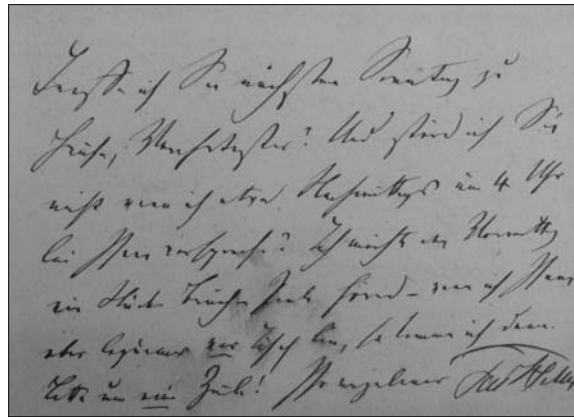 Treffe ich Sie nächsten Sonntag zu
Hause, Verehrtester? Und störe ich Sie
nicht wenn ich etwa Nachmittags um 4 Uhr
bei Ihnen vorspreche? Ich möchte den Vormittag
ein Stück
aber bequemer vor Tisch bin, so komme ich dann.
Bitte um eine Zeile! Ihr ergebener